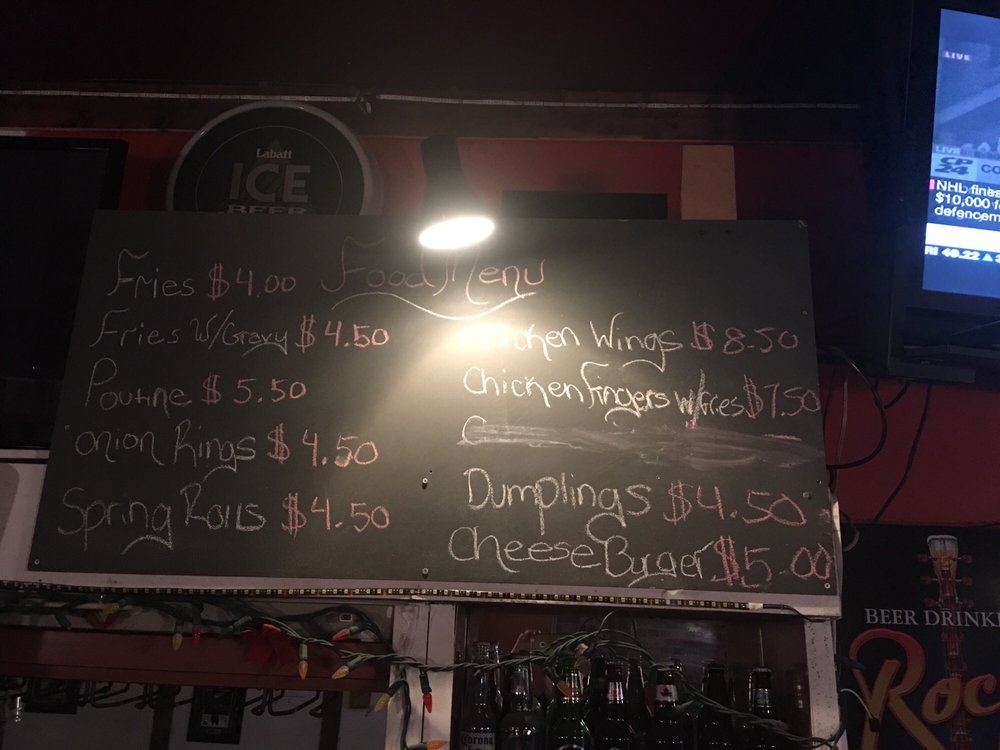 Labatt
ICE
BEER
Food Menu
Fries $4.00
Fries W/Gravy $4.50
Poutine $5.50
onion Rings $4.50
Spring Rolls $4.50
Chicken Wings $8.50
Chicken Fingers W/Fries $7.50
Dumplings $4.50
Cheese Burger $5.00
LIVE
LIVE
CP
24
CO
NHL fines
$10,000 f
defencem
40.22 ▲
BEER DRINK
Roc
Corona